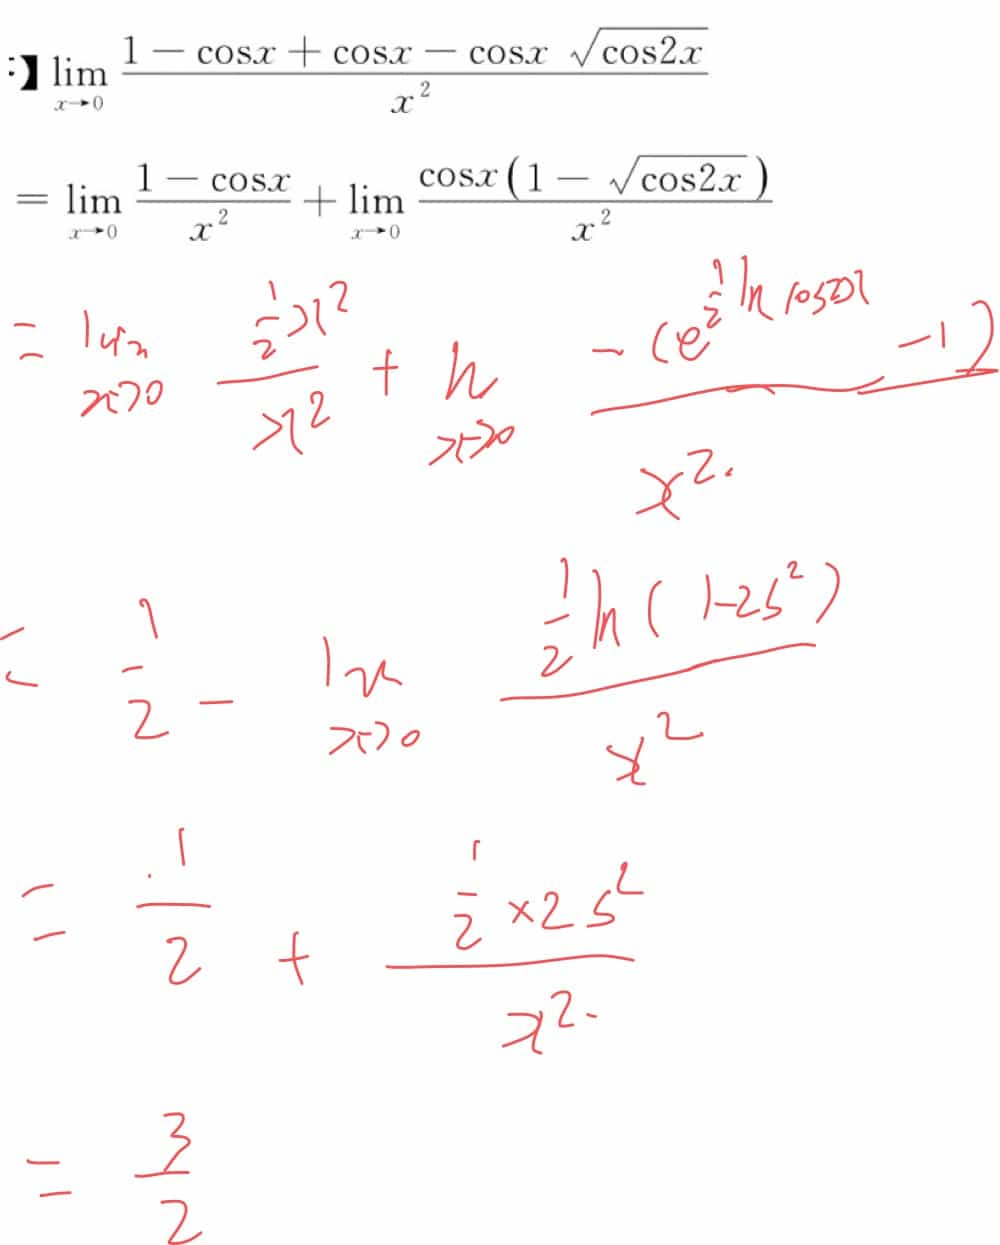 】lim_{x→0} \frac{1 - cosx + cosx - cosx \sqrt{cos2x}}{x^2}
= lim_{x→0} \frac{1 - cosx}{x^2} + lim_{x→0} \frac{cosx(1 - \sqrt{cos2x})}{x^2}
= lim_{x→0} \frac{\frac{1}{2}x^2}{x^2} + lim_{x→0} \frac{-(e^{\frac{1}{2}ln cos2x} - 1)}{x^2}
= \frac{1}{2} - lim_{x→0} \frac{\frac{1}{2}ln(1-2s^2)}{x^2}
= \frac{1}{2} + \frac{\frac{1}{2}×2s^2}{x^2}
= \frac{3}{2}